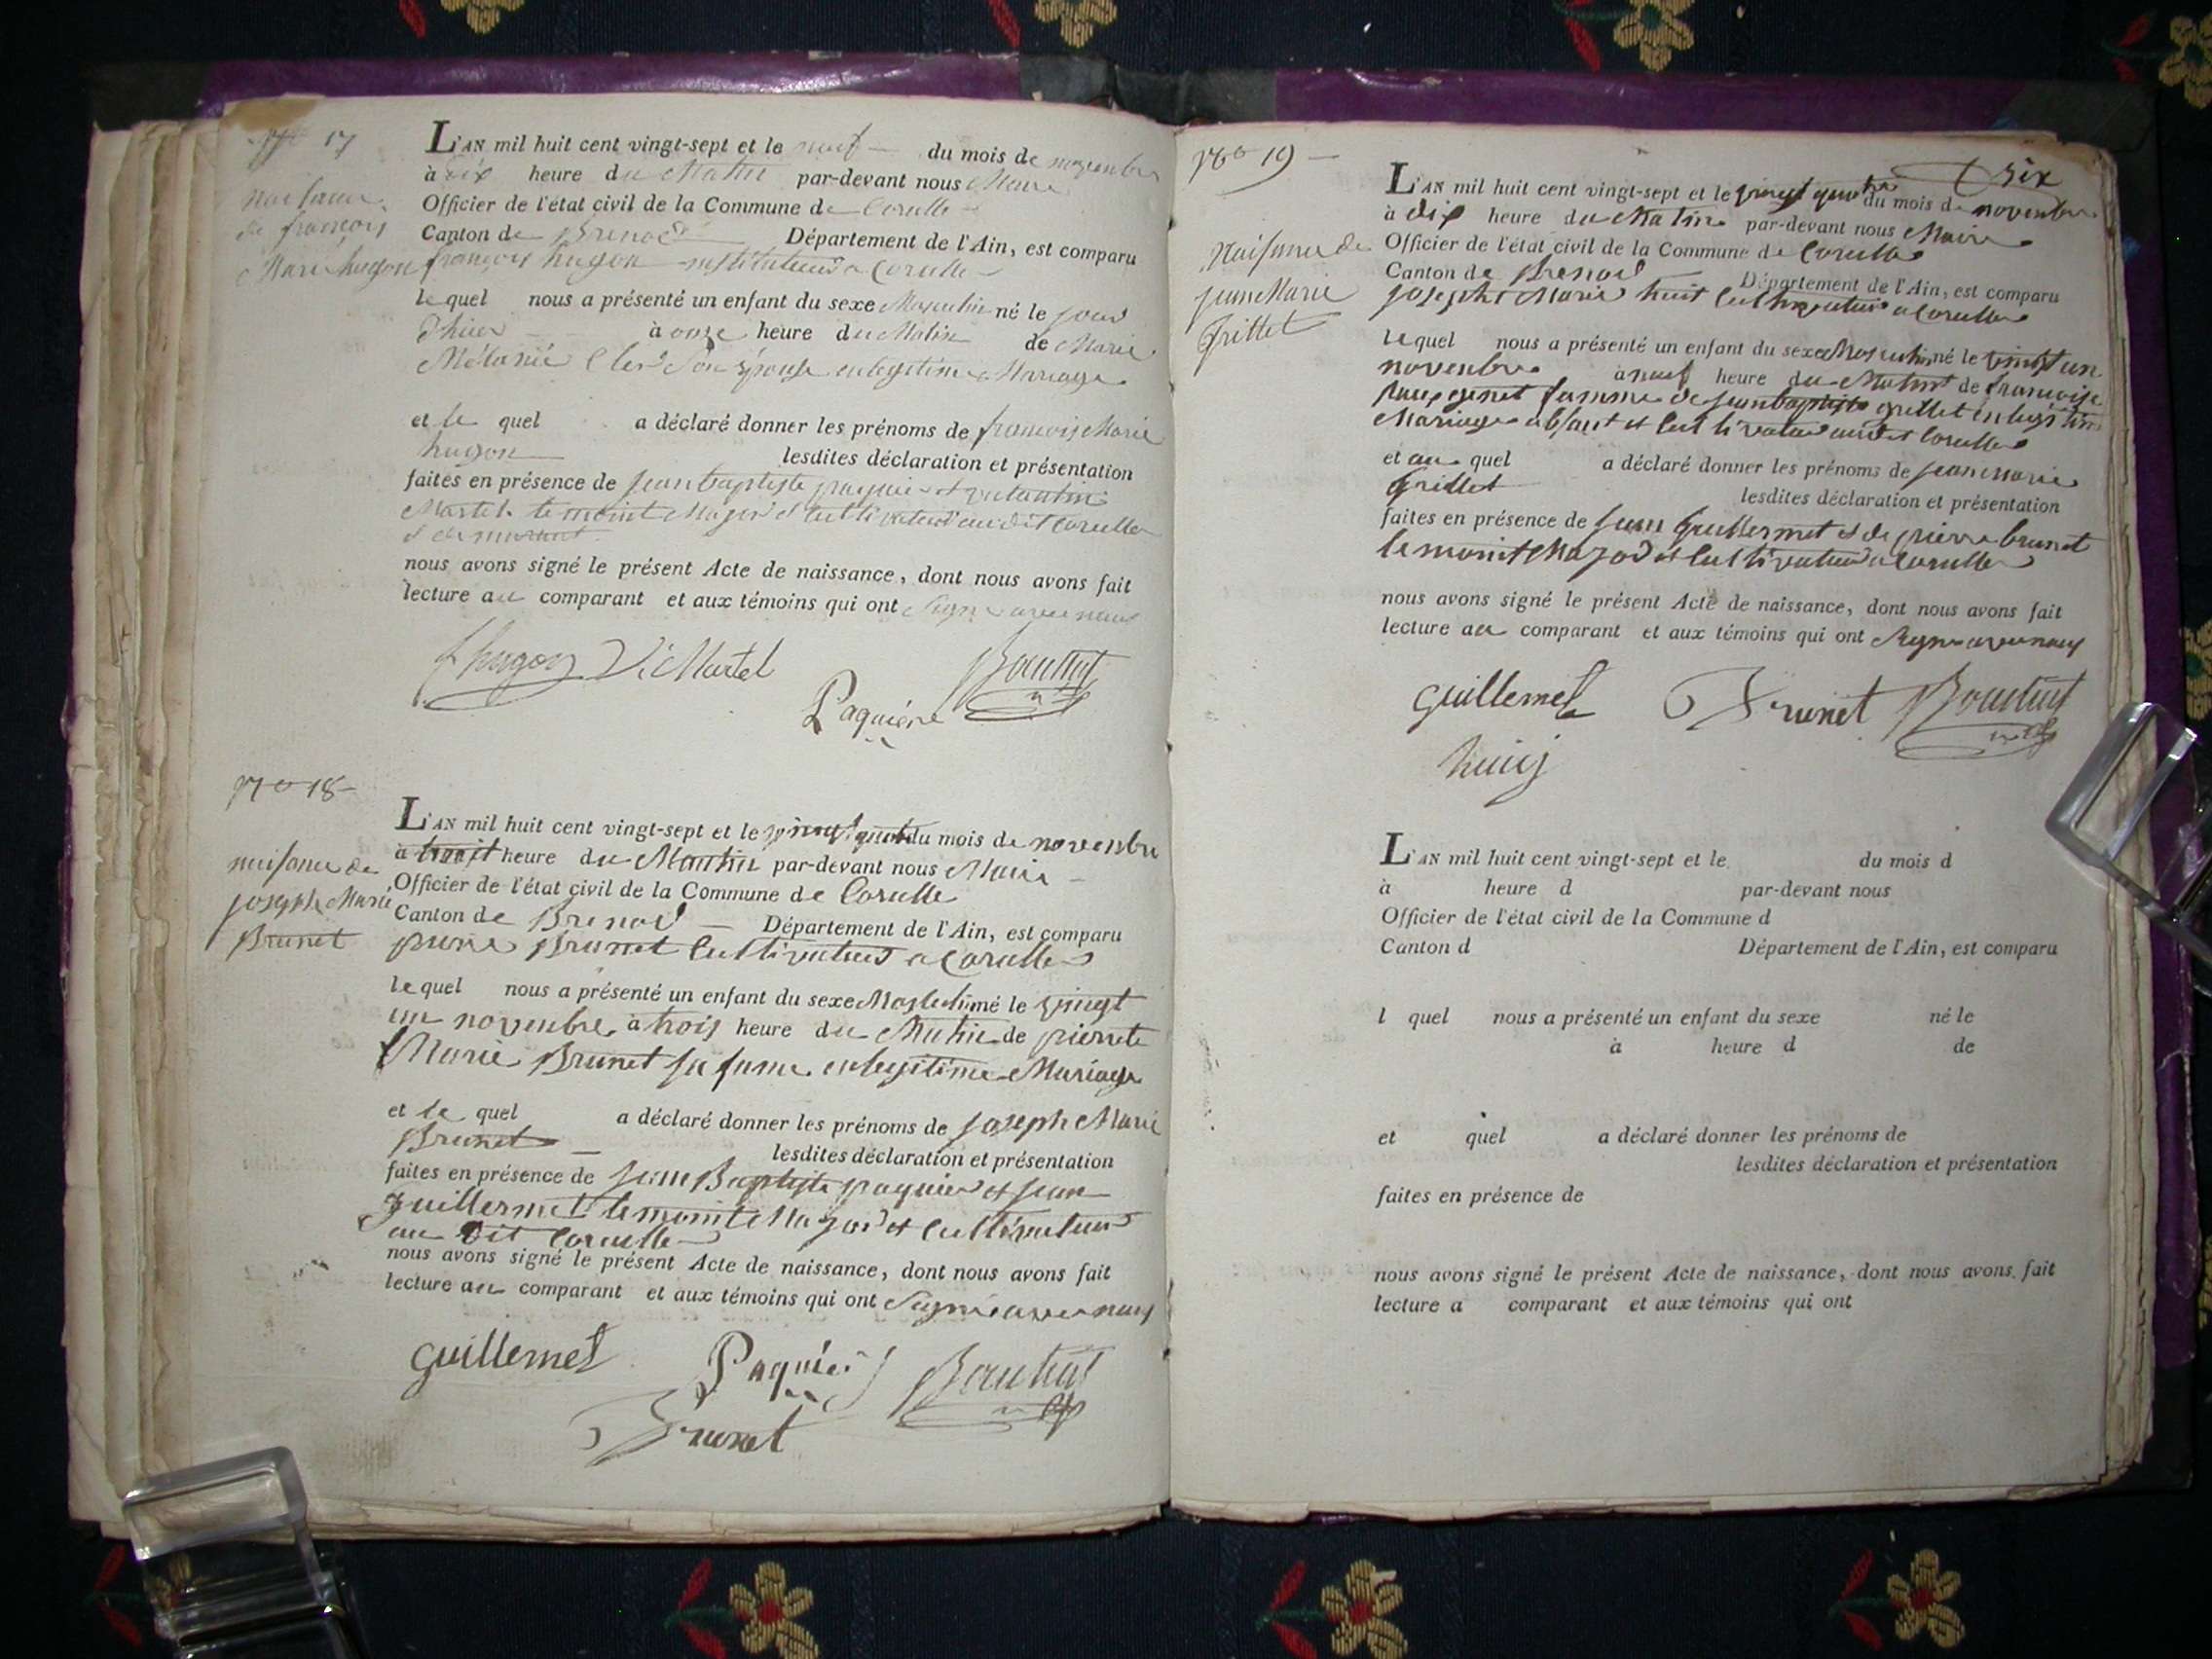 17
L'AN mil huit cent vingt-sept et le neuf du mois de novembre
à dix heure du Matin par-devant nous Maire
Officier de l'état civil de la Commune de Corcelle
Canton de Brenod Département de l'Ain, est comparu
françois hugon instituteur a Corcelle
le quel nous a présenté un enfant du sexe Masculin né le jour
d'hier à onze heure du Matin de Marie
Mélanie Son épouse en legitime Mariage
et le quel a déclaré donner les prénoms de francois Marie
hugon lesdites déclaration et présentation
faites en présence de Jean baptiste paquier et valantin
Martel temoint Major et Cultivateur au dit Corcelle
nous avons signé le présent Acte de naissance, dont nous avons fait
lecture au comparant et aux témoins qui ont Signé avec nous
naisance
de françois
Marie hugon
f hugon V. Martel
Paquiere Bouttut
No 18
L'AN mil huit cent vingt-sept et le vingt quatre du mois de novenbre
à heure du Mantin par-devant nous Maire
Officier de l'état civil de la Commune de Corcelle
Canton de Brenod Département de l'Ain, est comparu
pierre Brunet Cultivateur a Corcelle
le quel nous a présenté un enfant du sexe Masculin né le vingt
un novenbre à trois heure du Matin de pierrete
Marie Brunet sa fame en legitime Mariage
et le quel a déclaré donner les prénoms de Joseph Marie
Brunet lesdites déclaration et présentation
faites en présence de Jean Baptiste paquier et jean
guillermet temoint Major et Cultivateur
au dit Corcelle
nous avons signé le présent Acte de naissance, dont nous avons fait
lecture au comparant et aux témoins qui ont Signé avec nous
naisance de
joseph Marie
Brunet
guillermet Paquier
Brunet
No 19
six
L'AN mil huit cent vingt-sept et le vingt quatre du mois de novenbre
à dix heure du Matin par-devant nous Maire
Officier de l'état civil de la Commune de Corcelle
Canton de Brenod Département de l'Ain, est comparu
joseph Marie huit Cultivateur a Corcelle
le quel nous a présenté un enfant du sexe Masculin né le vingt un
novenbre à neuf heure du Matin de francoise
genet famme de jean baptiste grillet en legitime
Mariage absant et Cultivateur audit Corcelle
et au quel a déclaré donner les prénoms de jean Marie
Grillet lesdites déclaration et présentation
faites en présence de Jean Guillermet et de pierre brunet
temoint Major et Cultivateur a Corcelle
nous avons signé le présent Acte de naissance, dont nous avons fait
lecture au comparant et aux témoins qui ont Signé avec nous
Naisance de
jean Marie
Grillet
guillermet Brunet
L'AN mil huit cent vingt-sept et le du mois d
à heure d par-devant nous
Officier de l'état civil de la Commune d
Canton d Département de l'Ain, est comparu
l quel nous a présenté un enfant du sexe né le
à heure d de
et quel a déclaré donner les prénoms de
lesdites déclaration et présentation
faites en présence de
nous avons signé le présent Acte de naissance, dont nous avons fait
lecture a comparant et aux témoins qui ont